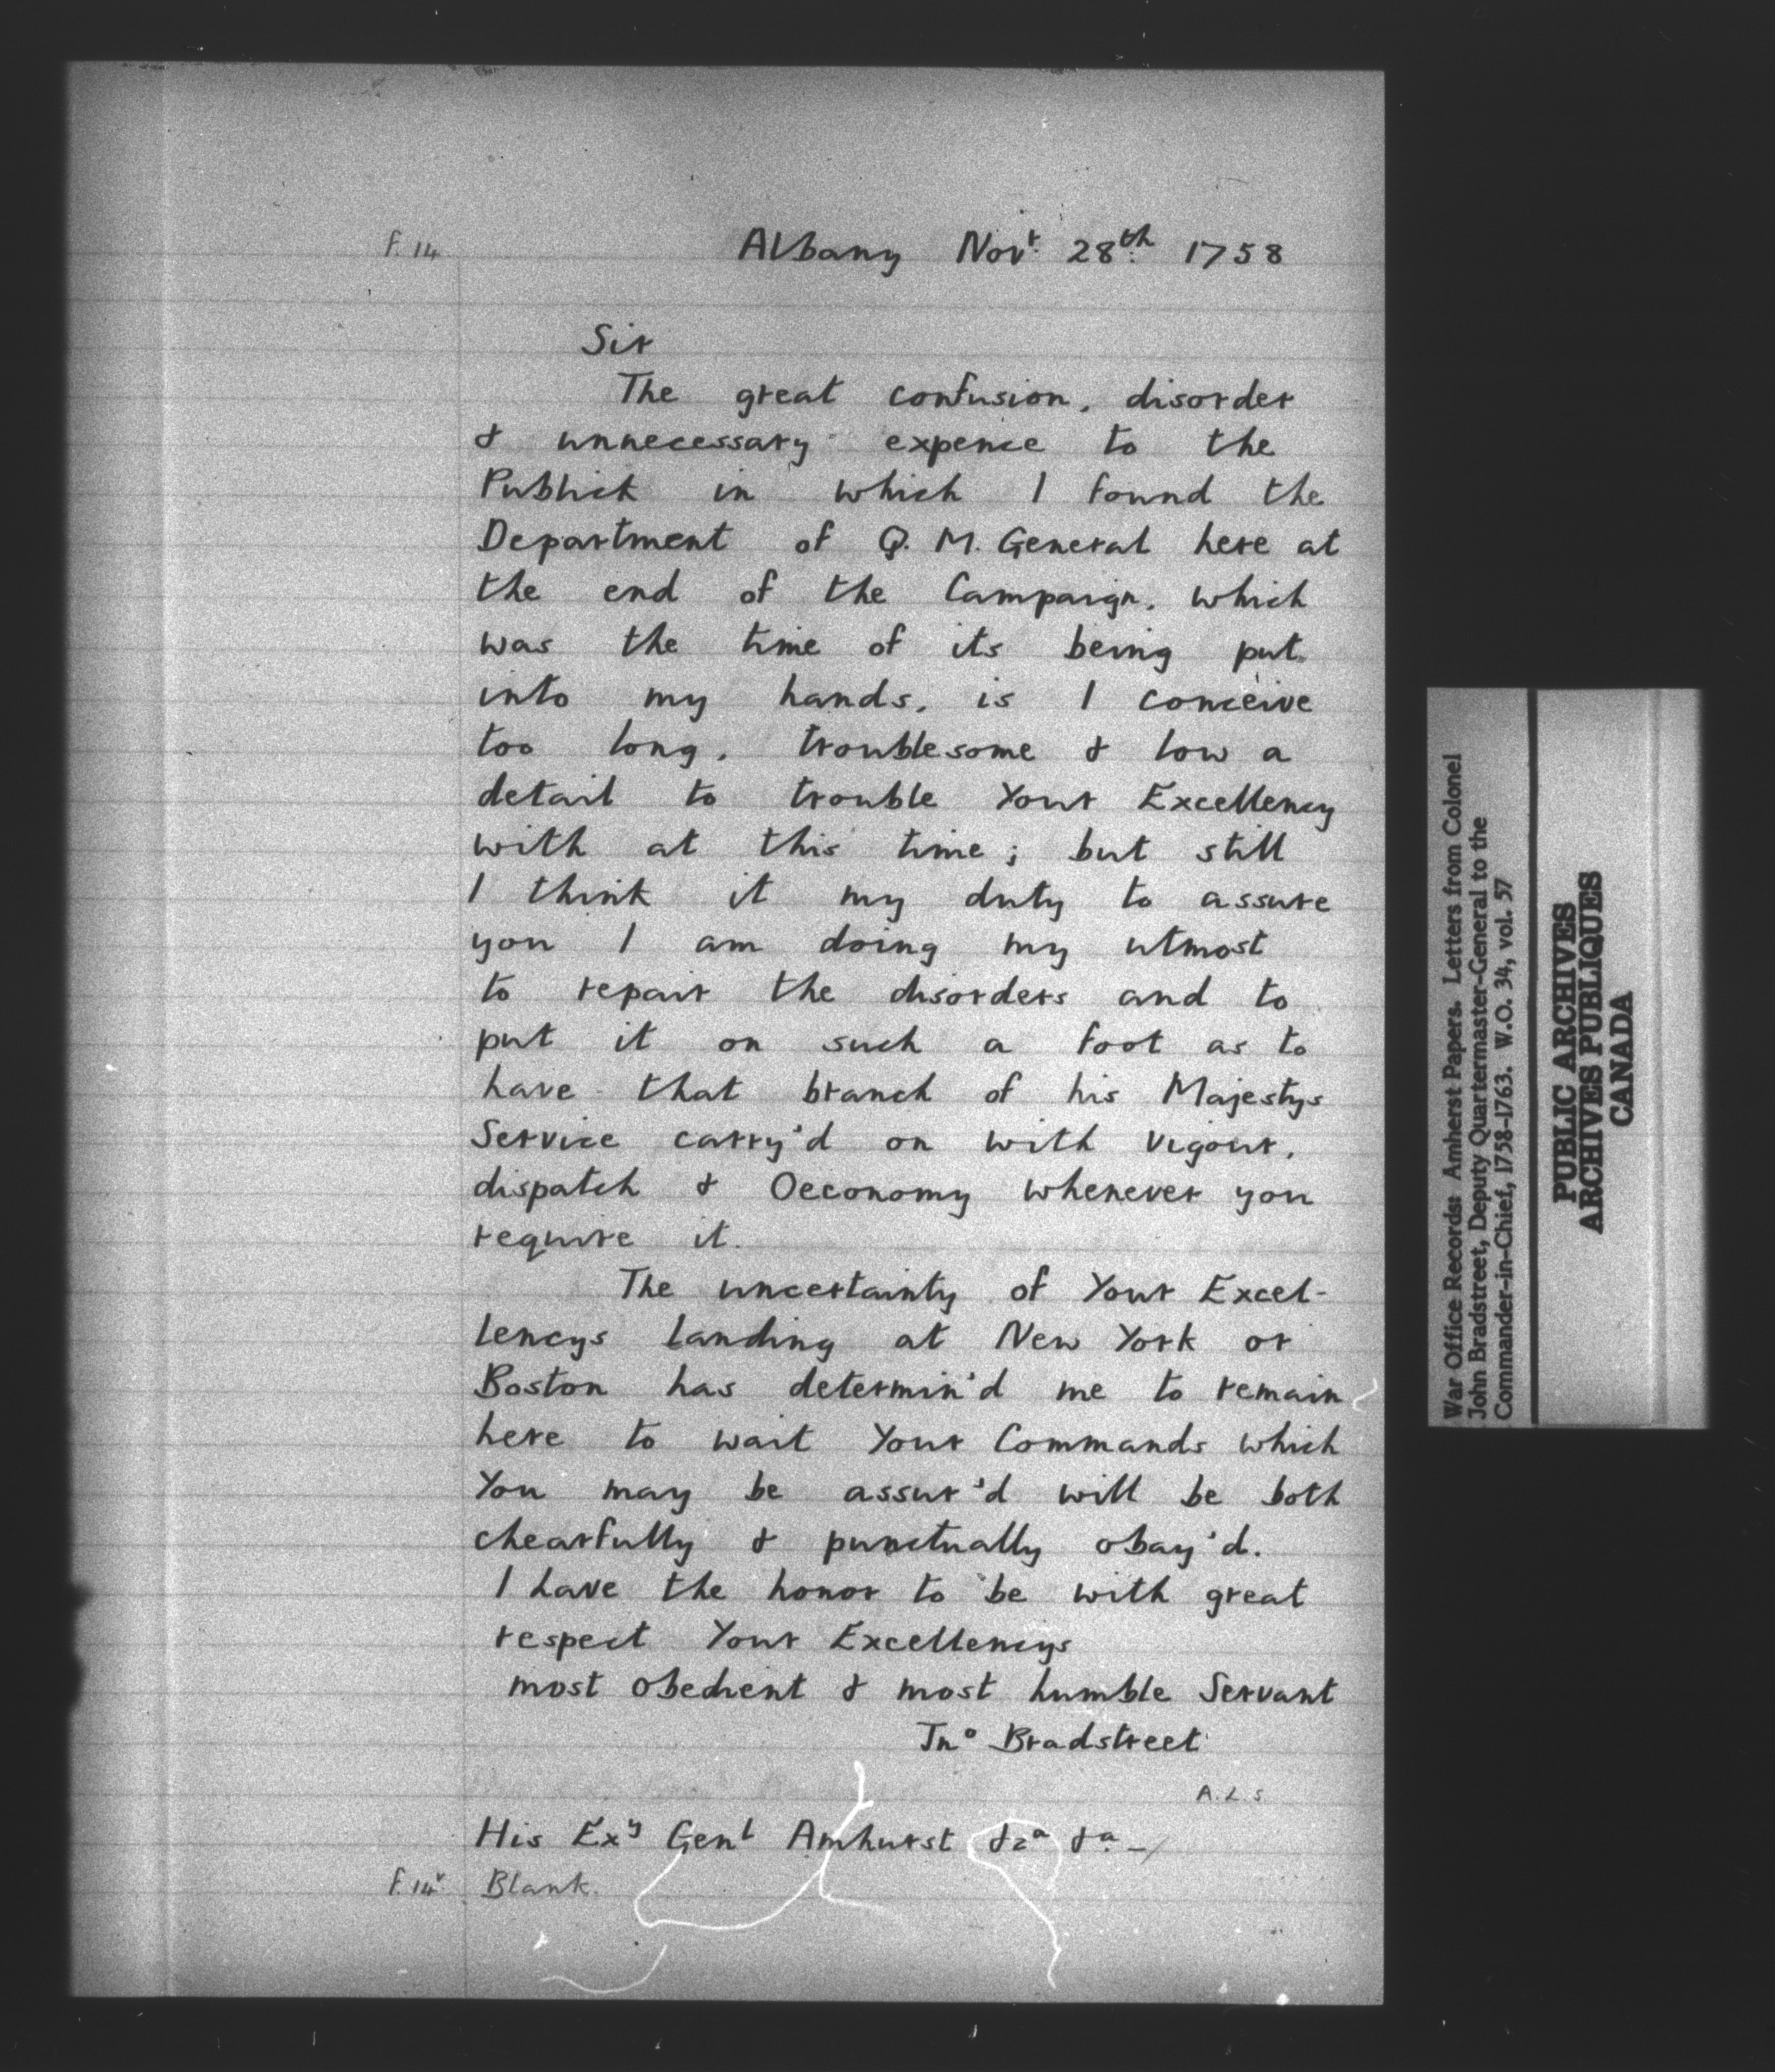 F. 14
Albany Novr. 28th. 1758
Sir
The great confusion, disorder
& unnecessary expence to the
Publick in which I found the
Department of Q. M. General here at
the end of the Campaign, which
was the time of its being put
into my hands, is I conceive
too long, troublesome & low a
detail to trouble Your Excellency
with at this time; but still
I think it my duty to assure
you I am doing my utmost
to repair the disorders and to
put it on such a foot as to
have that branch of his Majestys
Service carry'd on with vigour,
dispatch & Oeconomy whenever you
require it.
The uncertainty of Your Excel-
lencys landing at New York or
Boston has determin'd me to remain
here to wait Your Commands which
You may be assur'd will be both
chearfully & punctually obay'd.
I have the honor to be with great
respect Your Excellencys
most obedient & most humble Servant
Jno Bradstreet
A.L.S
His Exy Genl Amhurst &ca &a. -/
F. 14v. Blank.
War Office Records: Amherst Papers. Letters from Colonel
John Bradstreet, Deputy Quartermaster-General to the
Commander-in-Chief, 1758-1763. W.O. 34, vol. 57
PUBLIC ARCHIVES
ARCHIVES PUBLIQUES
CANADA